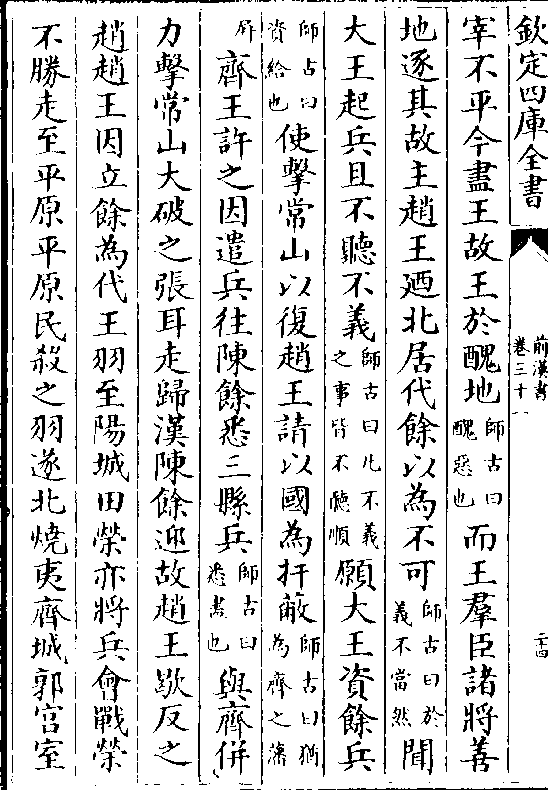 欽定四庫全書
前漢書
卷三十一
二十四
宰不平今盡王故王於醜地師古曰醜惡也而王羣臣諸將善
地逐其故主趙王廼北居代餘以為不可師古曰於義不當然聞
大王起兵且不聽不義師古曰凡不義之事皆不聽順願大王資餘兵
師古曰資給也使擊常山以復趙王請以國為扞蔽師古曰猶為齊之藩
屏齊王許之因遣兵往陳餘悉三縣兵師古曰悉盡也與齊併
力擊常山大破之張耳走歸漢陳餘迎故趙王歇反之
趙趙王因立餘為代王羽至陽城田榮亦將兵會戰榮
不勝走至平原平原民殺之羽遂北燒夷齊城郭宫室